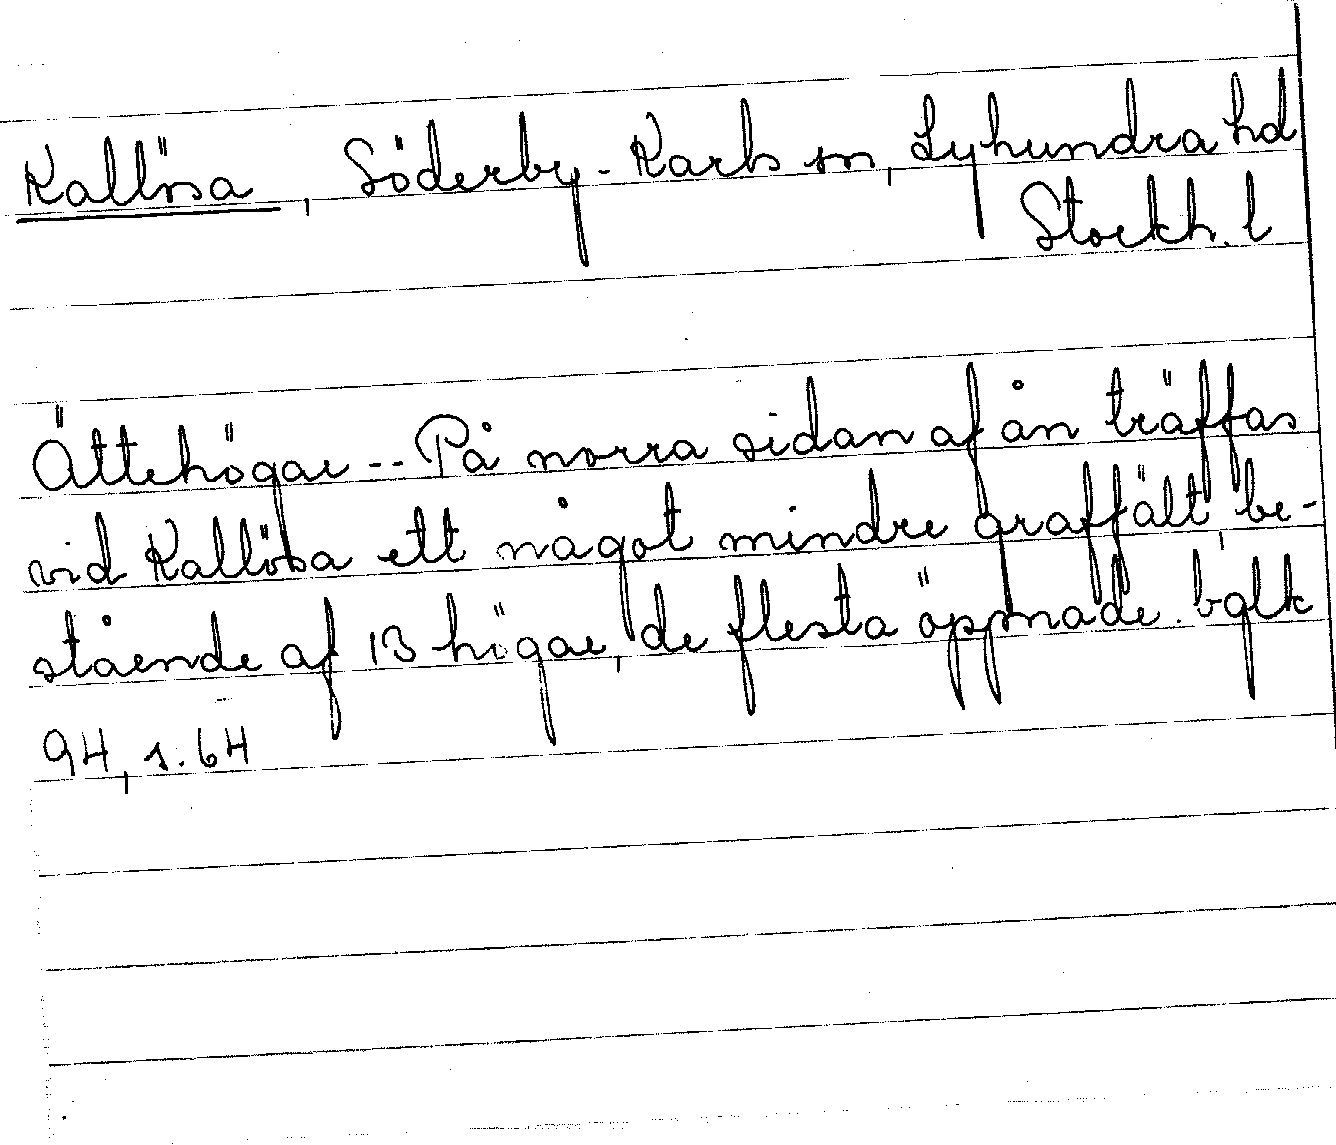 Kallösa, Söderby-Karls sn, Lyhundra hd
Stockh. l
Ättehögar -- På norra sidan af ån träffas
vid Kallösa ett något mindre graffält, be-
stående af 13 högar, de flesta öppnade.
94, s. 64